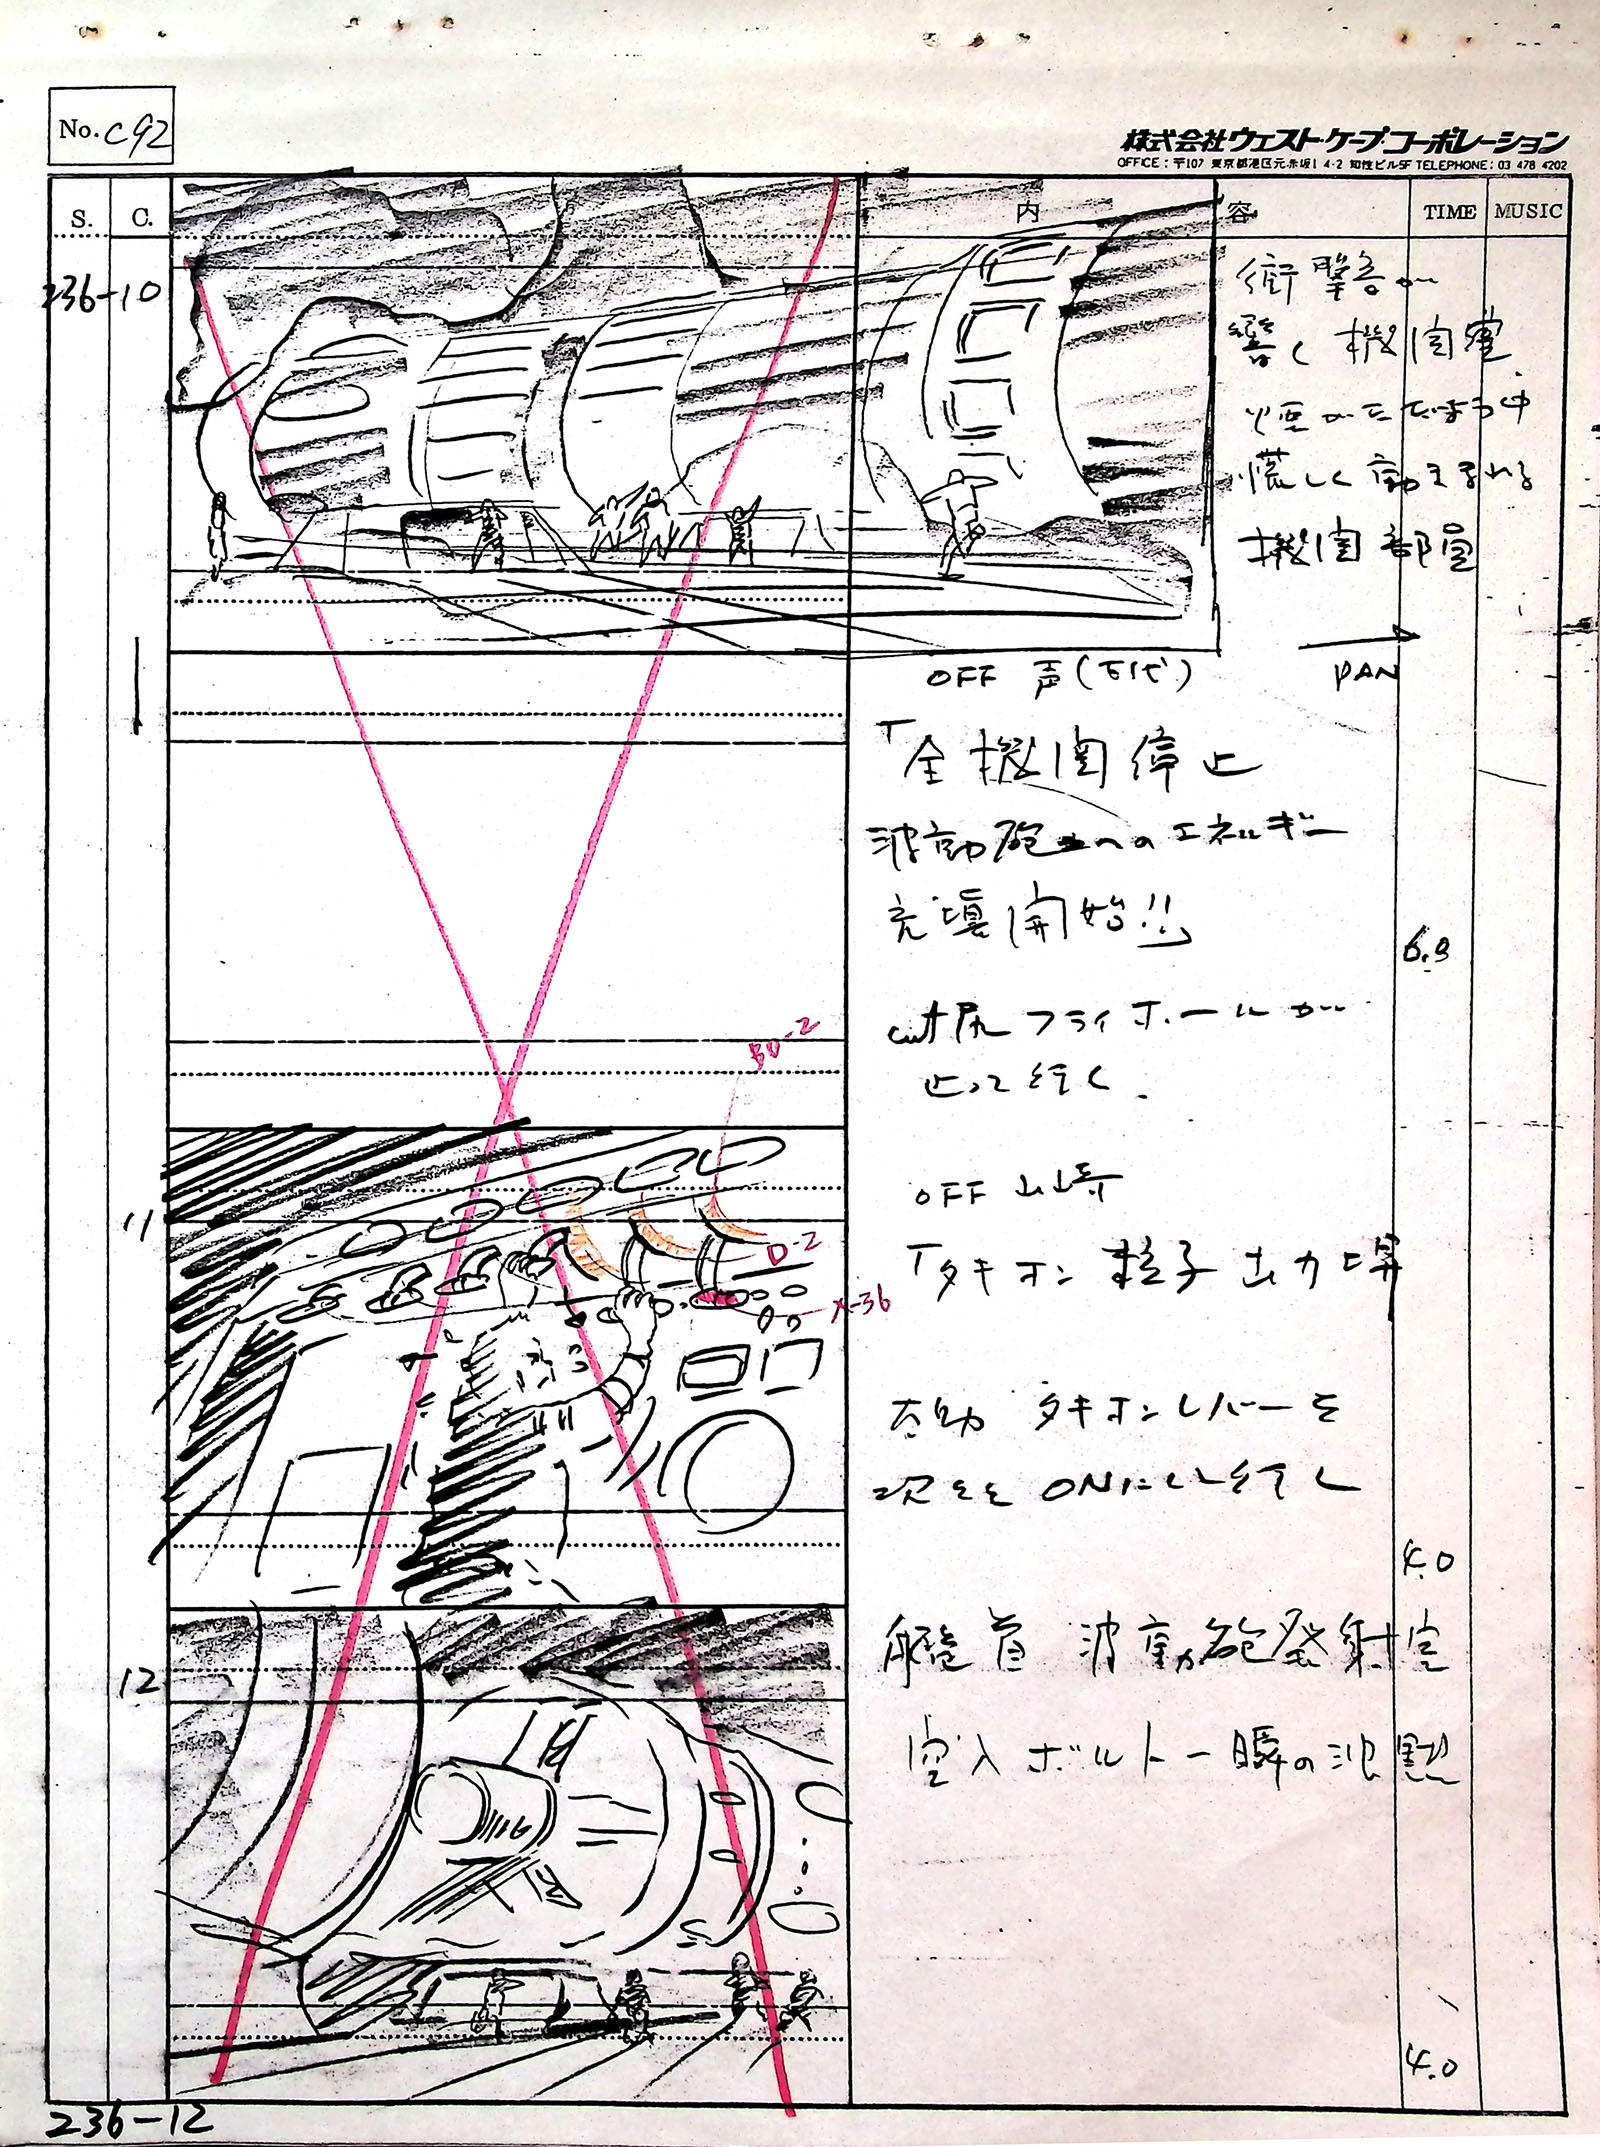 No. C92
株式会社ウェスト・ケープ・コーポレーション
OFFICE：〒107 東京都港区元赤坂1-4-2 知性ビル5F TELEPHONE：03 478 4202
S. C. 内 容 TIME MUSIC
236-10
衝撃音が
響く機関室
煙が立
慌しく動きまわる
機関部員
PAN
OFF 声(古代)
「全機関停止
波動砲へのエネルギー
充填開始!!」
6.0
cut尻 フライホールが
止って行く.
BO-2
11
OFF 山崎
「タキオン粒子出力上昇
D-2
X-36
太助 タキオンレバーを
次々とONにして行く
4.0
12
艦首 波動砲発射室
突入ボルト一瞬の沈黙
4.0
236-12